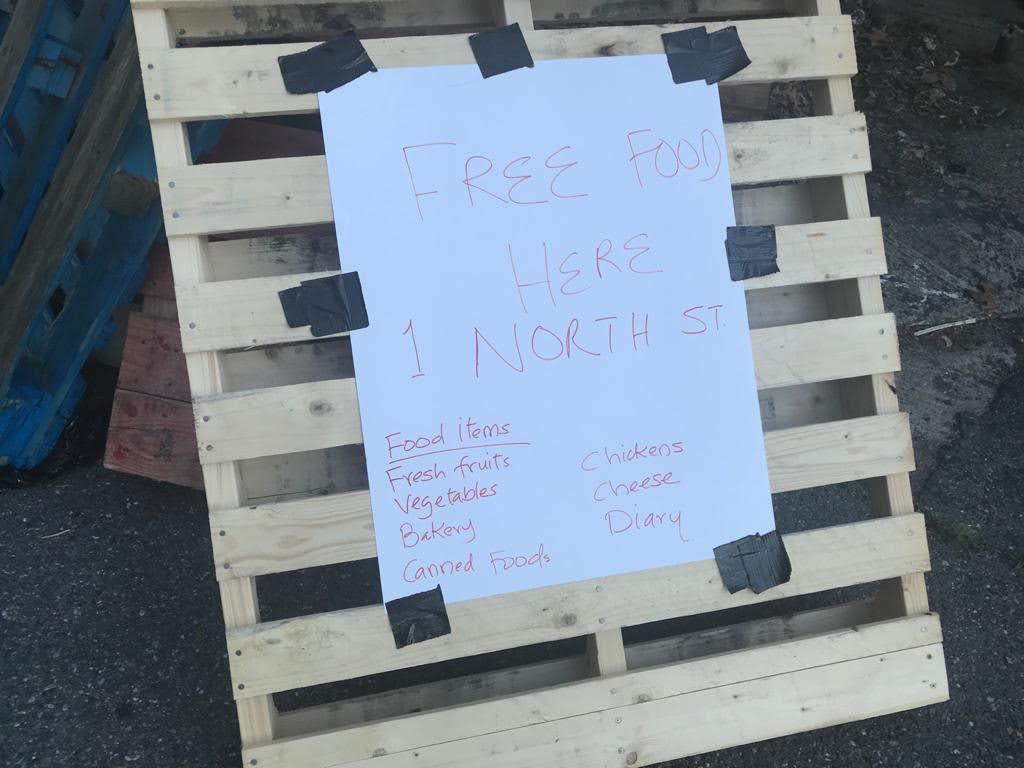 FREE FOOD
HERE
1 NORTH ST.
Food items
Fresh fruits
Vegetables
Bakery
Canned Foods
Chickens
Cheese
Diary